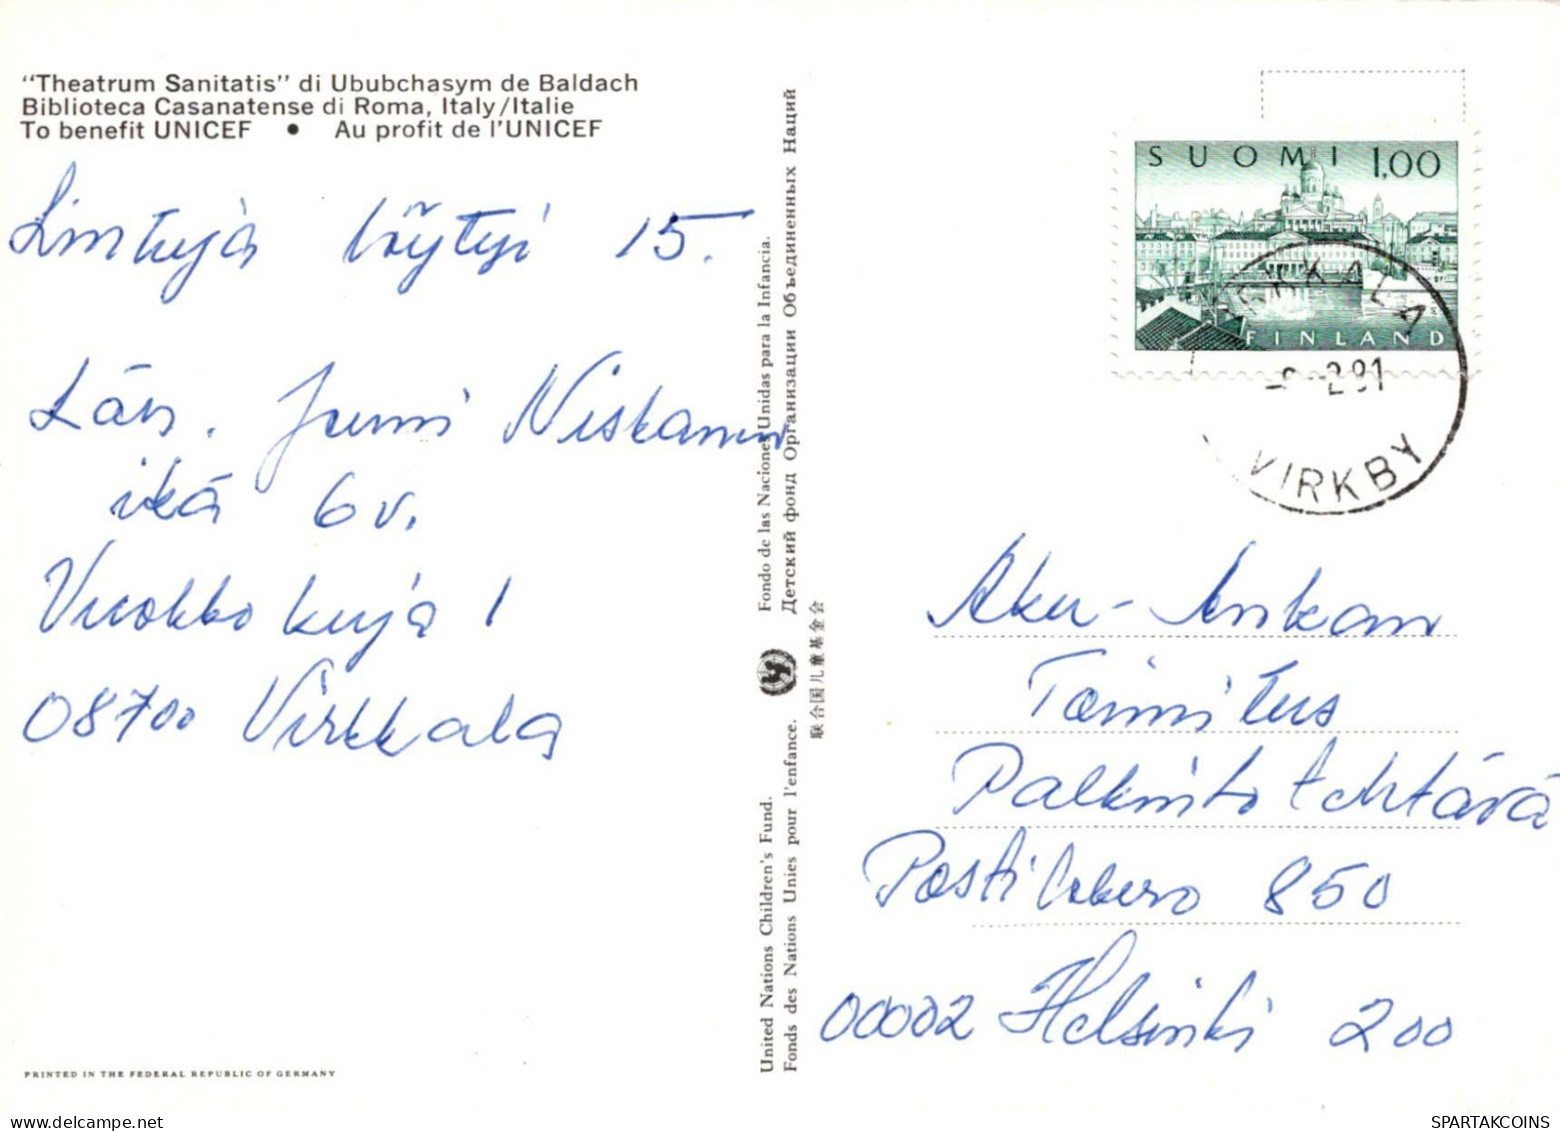 "Theatrum Sanitatis" di Ububchasym de Baldach
Biblioteca Casanatense di Roma, Italy/Italie
To benefit UNICEF • Au profit de l'UNICEF
Lintuja löytyi 15.
Läh. Jumi Niskanen
ikä 6 v.
Vuokkokuja 1
08700 Virkkala
PRINTED IN THE FEDERAL REPUBLIC OF GERMANY
United Nations Children's Fund. Fondo de las Naciones Unidas para la Infancia.
Fonds des Nations Unies pour l'enfance. Детский фонд Организации Объединенных Наций
联合国儿童基金会
SUOMI 1,00
FINLAND
VIRKKALA
2.81
VIRKBY
Aku-Ankan
Toimitus
Palkintotehtävä
Postilokero 850
00002 Helsinki 200
SPARTAKCOINS